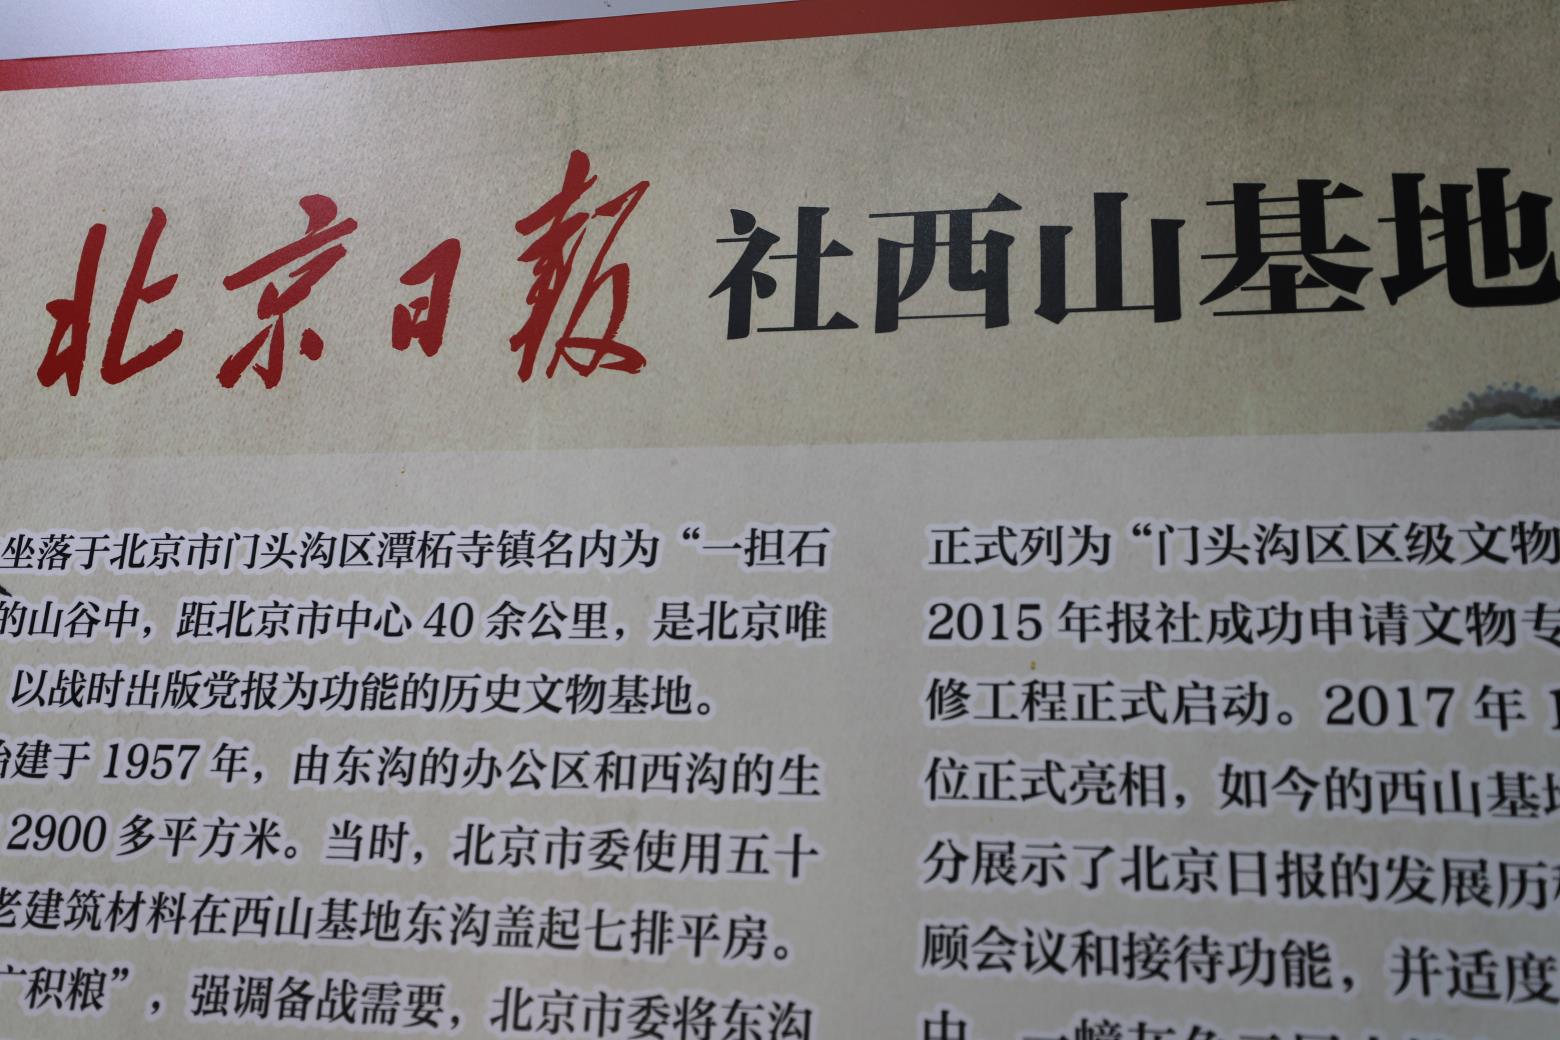 北京日报社西山基地
坐落于北京市门头沟区潭柘寺镇名内为“一担石
的山谷中，距北京市中心 40 余公里，是北京唯
以战时出版党报为功能的历史文物基地。
建于 1957 年，由东沟的办公区和西沟的生
2900 多平方米。当时，北京市委使用五十
老建筑材料在西山基地东沟盖起七排平房。
广积粮”，强调备战需要，北京市委将东沟
正式列为“门头沟区区级文物
2015 年报社成功申请文物专
修工程正式启动。2017 年 1
位正式亮相，如今的西山基地
分展示了北京日报的发展历
顾会议和接待功能，并适度